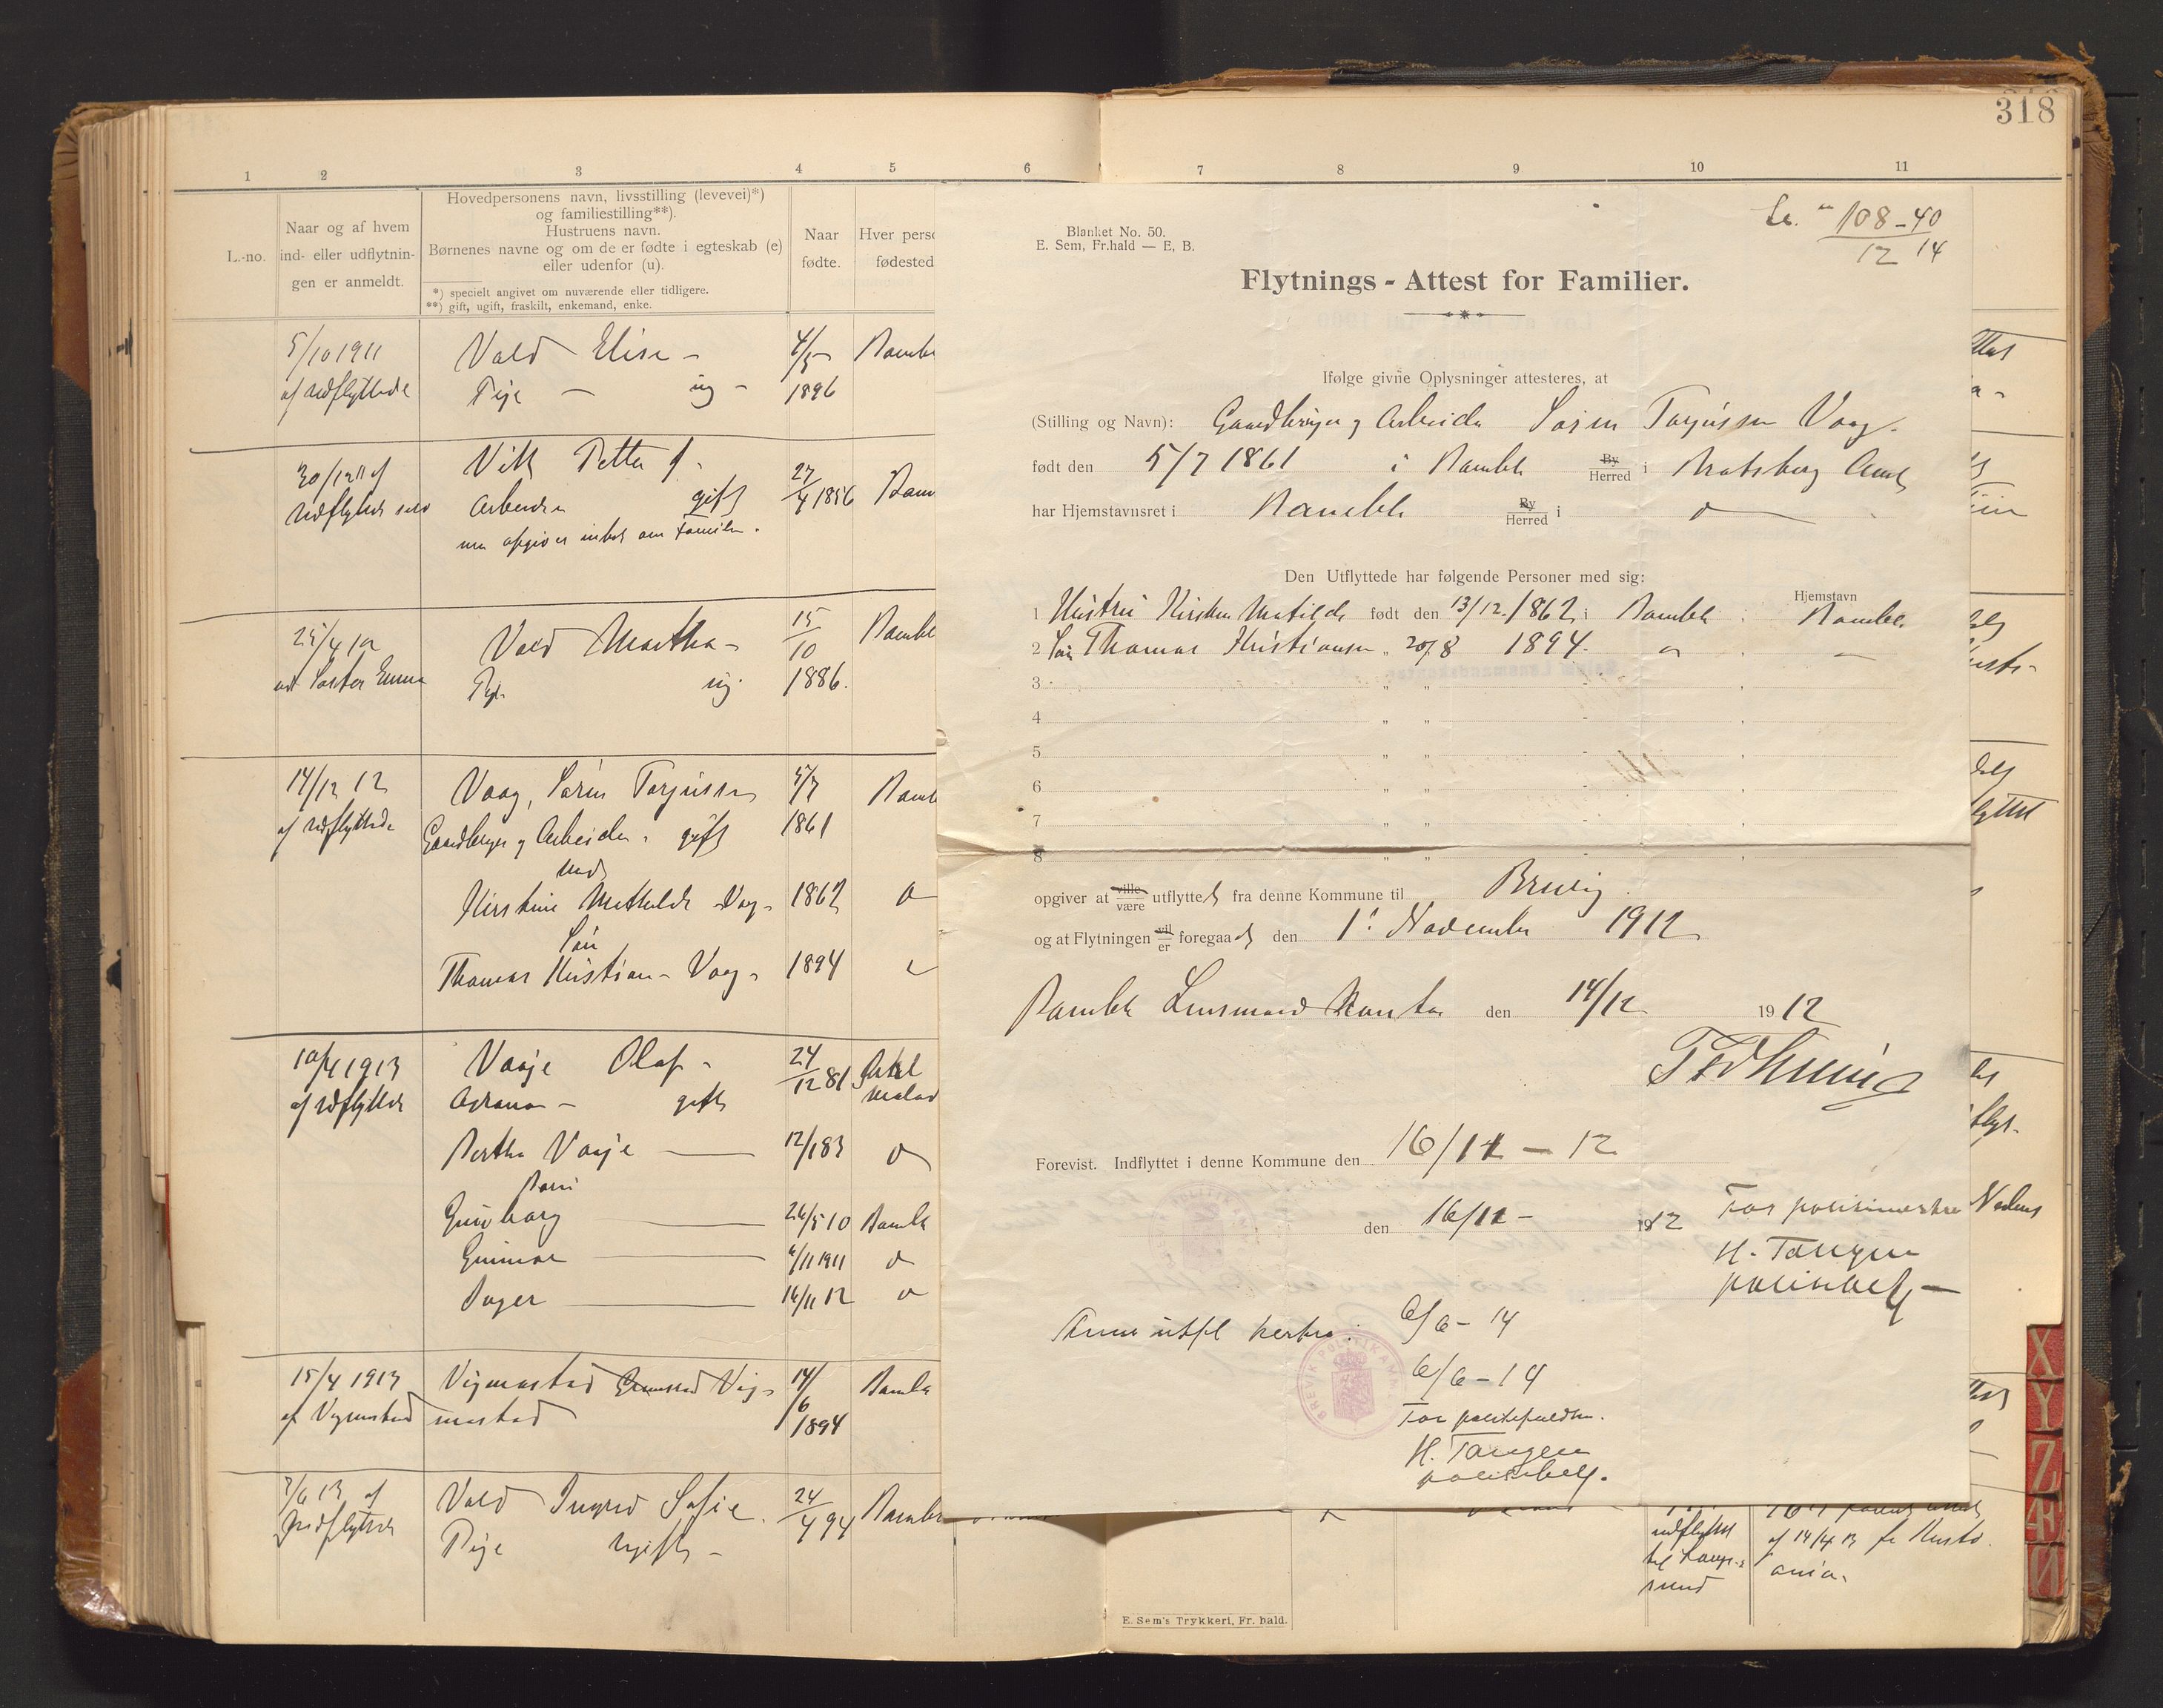 318
1 2 3 4 5 6 7 8 9 10 11
L.-no.
Naar og af hvem
ind- eller udflytnin-
gen er anmeldt.
Hovedpersonens navn, livsstilling (levevei)*)
og familiestilling**).
Hustruens navn.
Børnenes navne og om de er fødte i egteskab (e)
eller udenfor (u).
*) specielt angivet om nuværende eller tidligere.
**) gift, ugift, fraskilt, enkemand, enke.
Naar
fødte.
Hver perso
fødested
5/10 1911
af Udflyttede
Vold Elise -
Pige - ug -
4/5
1896
Bambl
30/12 11 af
Udflyttede selv
Petter J.
Arbeider gift
27/4 1856
Bam
25/4 12
Søster Emma
Vold Martha -
Pige ug.
15/10
1886.
Bamble
14/12 12
af Udflyttede
Vaag, Søren Torjussen
Gaardbruger og Arbeider, gift
med
Kirstine Mathilde Vaag -
Søn
Thomas Kristian - Vaag -
5/7
1861
1862
1894
Bambl
10/4 1913
af Udflyttede
Vaaje Olaf -
gift
Bertha Vaaje
Børn
Gunborg
Gunnar
Birger
24/12 81
12/1 83
26/5 10
6/11 1911
16/11 12
Bamble
15/4 1913
af Vigmostad
Vigmostad Vig-
mostad
14/6
1894
Bamble
7/6 13 af
Udflyttede
Vold Ingrid Sofie.
Pige ugift -
24/4 94
Bamble
Blanket No. 50.
E. Sem, Fr.hald — E, B.
108-40
12 14
Flytnings - Attest for Familier.
Ifølge givne Oplysninger attesteres, at
(Stilling og Navn): Gaardbruger og Arbeider Søren Torjussen Vaag.
født den 5/7 1861 i Bamble By/Herred i Bratsberg Amt
har Hjemstavnsret i Bamble By/Herred i
Den Utflyttede har følgende Personer med sig:
Hjemstavn
1 Hustru Kirsten Matilde født den 13/12 1862 i Bamble Bamble
2 Søn Thomas Kristiansen " 20/8 1894.
3
4
5
6
7
8
opgiver at ville/være utflyttet fra denne Kommune til Brevig
og at Flytningen vil/er foregaat den 1' November 1912
Bamble Lensmand Kontor den 14/12 1912
Forevist. Indflyttet i denne Kommune den 16/12 - 12
den 16/12 - 1912
For politimesteren
H. Tangen
politibetj -
utfl herfra: 6/6 - 14
6/6 - 14
BREVIK POLITIKAMMER
For politifuldm.
H. Tangen
politibetj.
udflyttet
til Lange-
sund
af 14/4 13 fra Kristi
ania.
E. Sem's Trykkeri, Fr. hald.
X
Y
Z
Æ